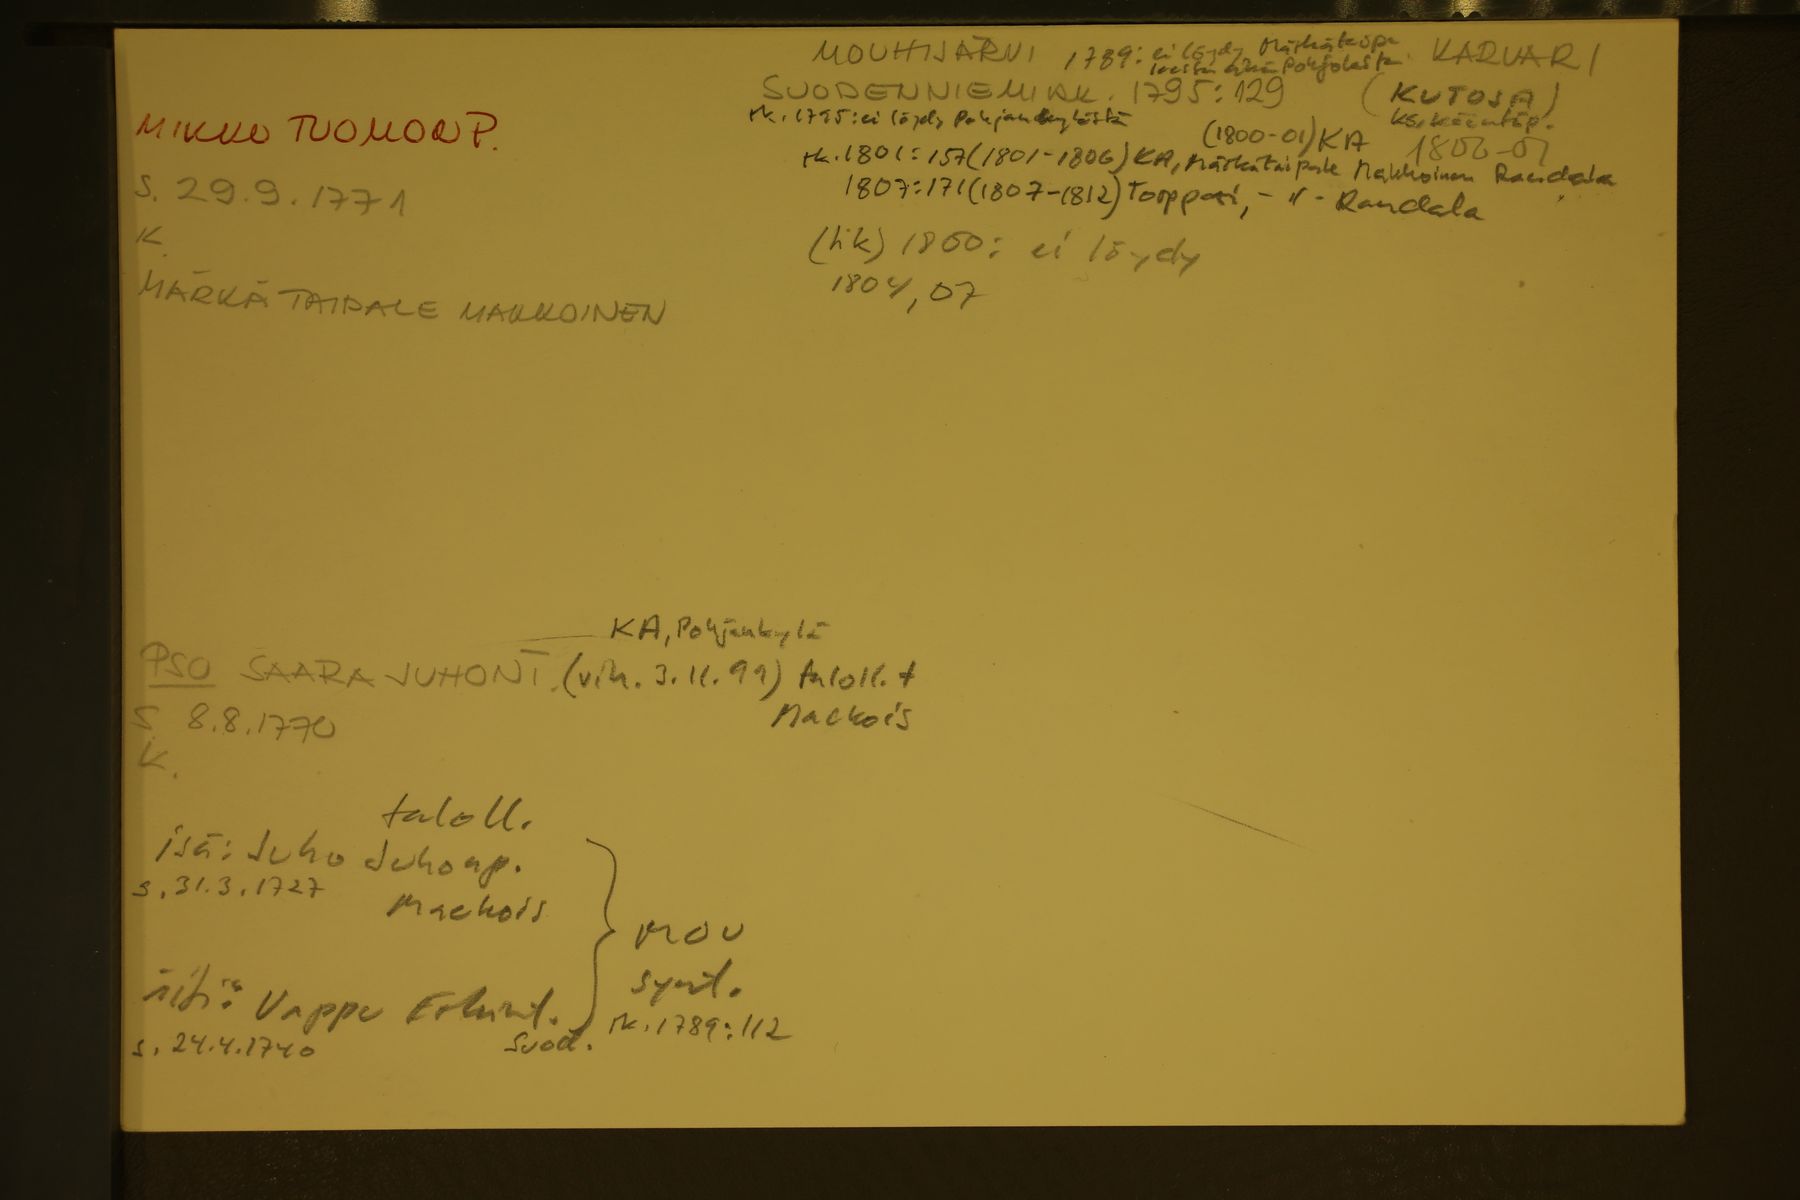 MOUHIJÄRVI 1789: ei löydy Märkätaipa KARVARI
leesta eikä Pohjolasta
SUODENNIEMI AK. 1795:129 (KUTOJA)
rk. 1795: ei löydy Pohjankylästä ks. kääntöp.
MIKKO TUOMONP. (1800-01) KA 1800-01
rk. 1801:157 (1801-1806) KA, Märkätaipale Makkoinen Randala
s. 29.9.1771 1807:171 (1807-1812) Torppari, - " - Randala
K. (hk) 1800: ei löydy
MÄRKÄTAIPALE MAKKOINEN 1804, 07
KA, Pohjankylä
PSO SAARA JUHONT. (vih. 3.11.99) taloll. t
Mackois
S. 8.8.1770
K.
taloll.
isä: Juho Juhonp.
s. 31.3.1727
Mackois
MOU
synt.
äiti: Vappu Erkint. rk. 1789:112
s. 24.4.1740 Suod.